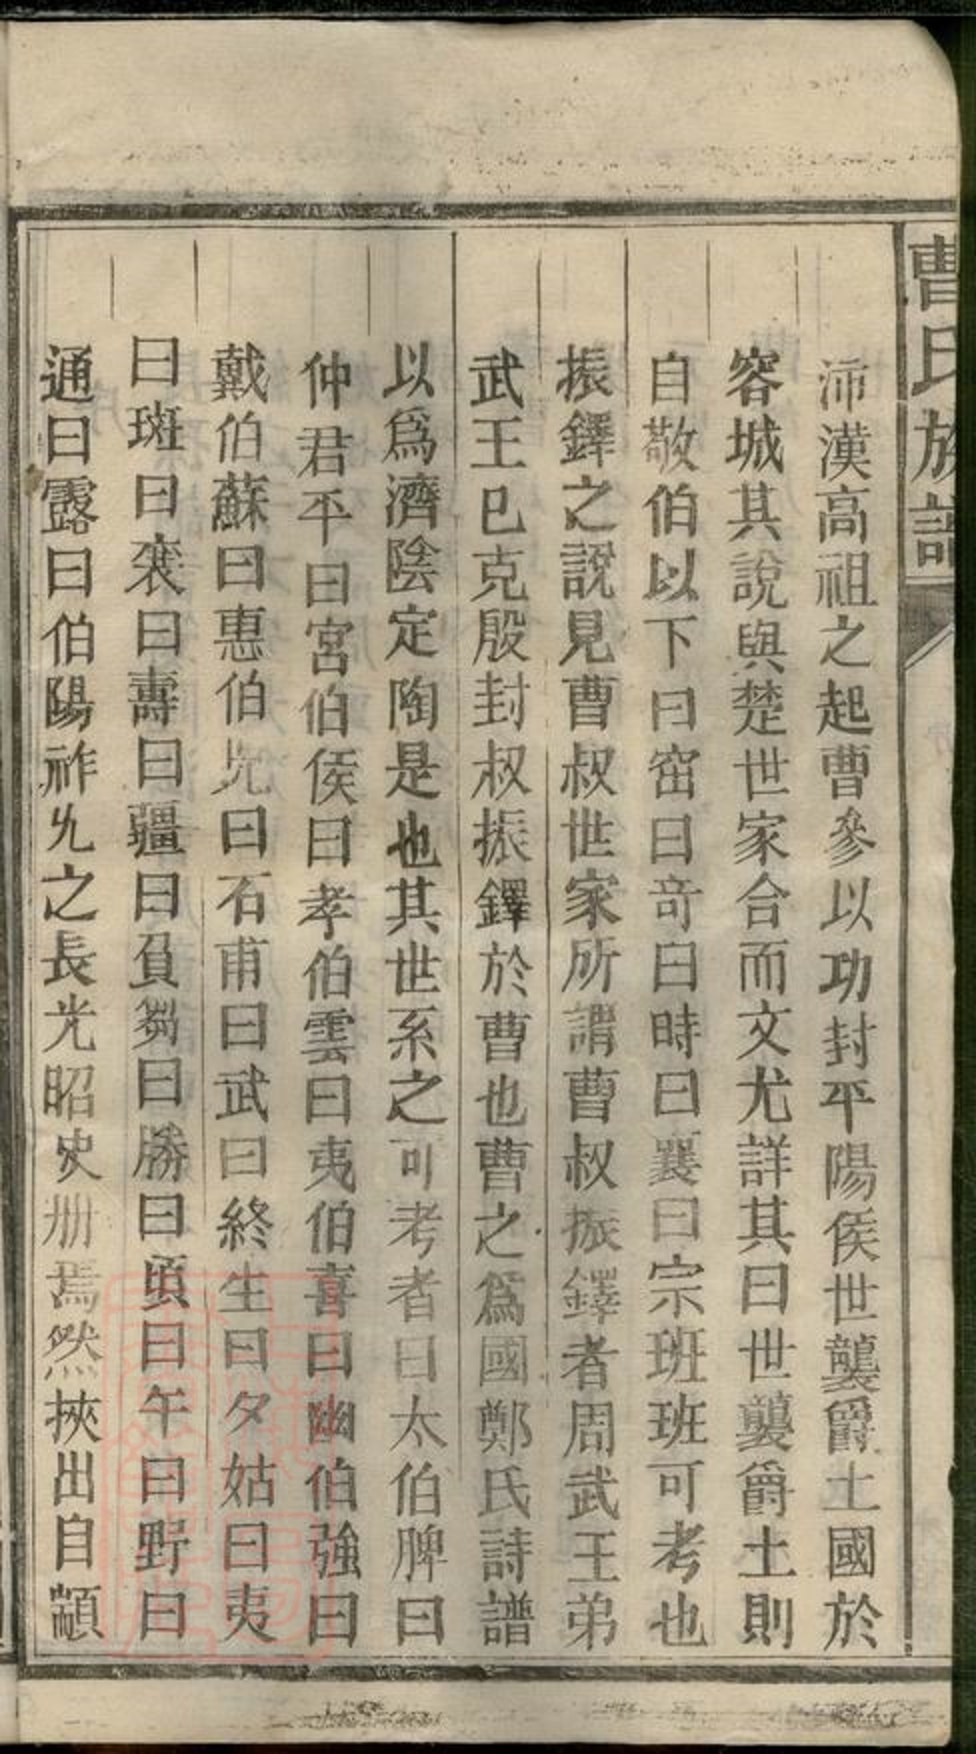 曹氏族譜
沛漢高祖之起曹參以功封平陽侯世襲爵土國於
容城其說與楚世家合而文尤詳其曰世襲爵土則
自敬伯以下曰窋曰竒曰時曰襄曰宗班班可考也
振鐸之說見曹叔世家所謂曹叔振鐸者周武王弟
武王已克殷封叔振鐸於曹也曹之爲國鄭氏詩譜
以爲濟陰定陶是也其世系之可考者曰太伯脾曰
仲君平曰宮伯侯曰孝伯雲曰夷伯喜曰幽伯強曰
戴伯蘇曰惠伯兕曰石甫曰武曰終生曰夕姑曰夷
曰班曰襄曰壽曰疆曰負芻曰勝曰須曰午曰野曰
通曰露曰伯陽祚之長光昭史册焉然挾出自顓